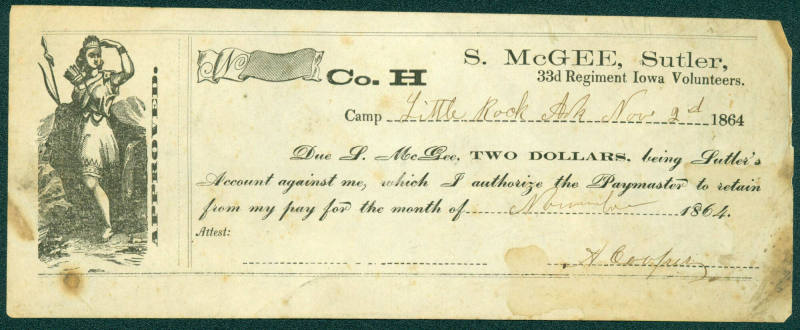 APPROVED:
N
Co. H
S. McGEE, Sutler,
33d Regiment Iowa Volunteers.
Camp Little Rock Ark Nov 2d 1864
Due S. McGee, TWO DOLLARS, being Sutler's
Account against me, which I authorize the Paymaster to retain
from my pay for the month of November 1864.
Attest:
A Cooper